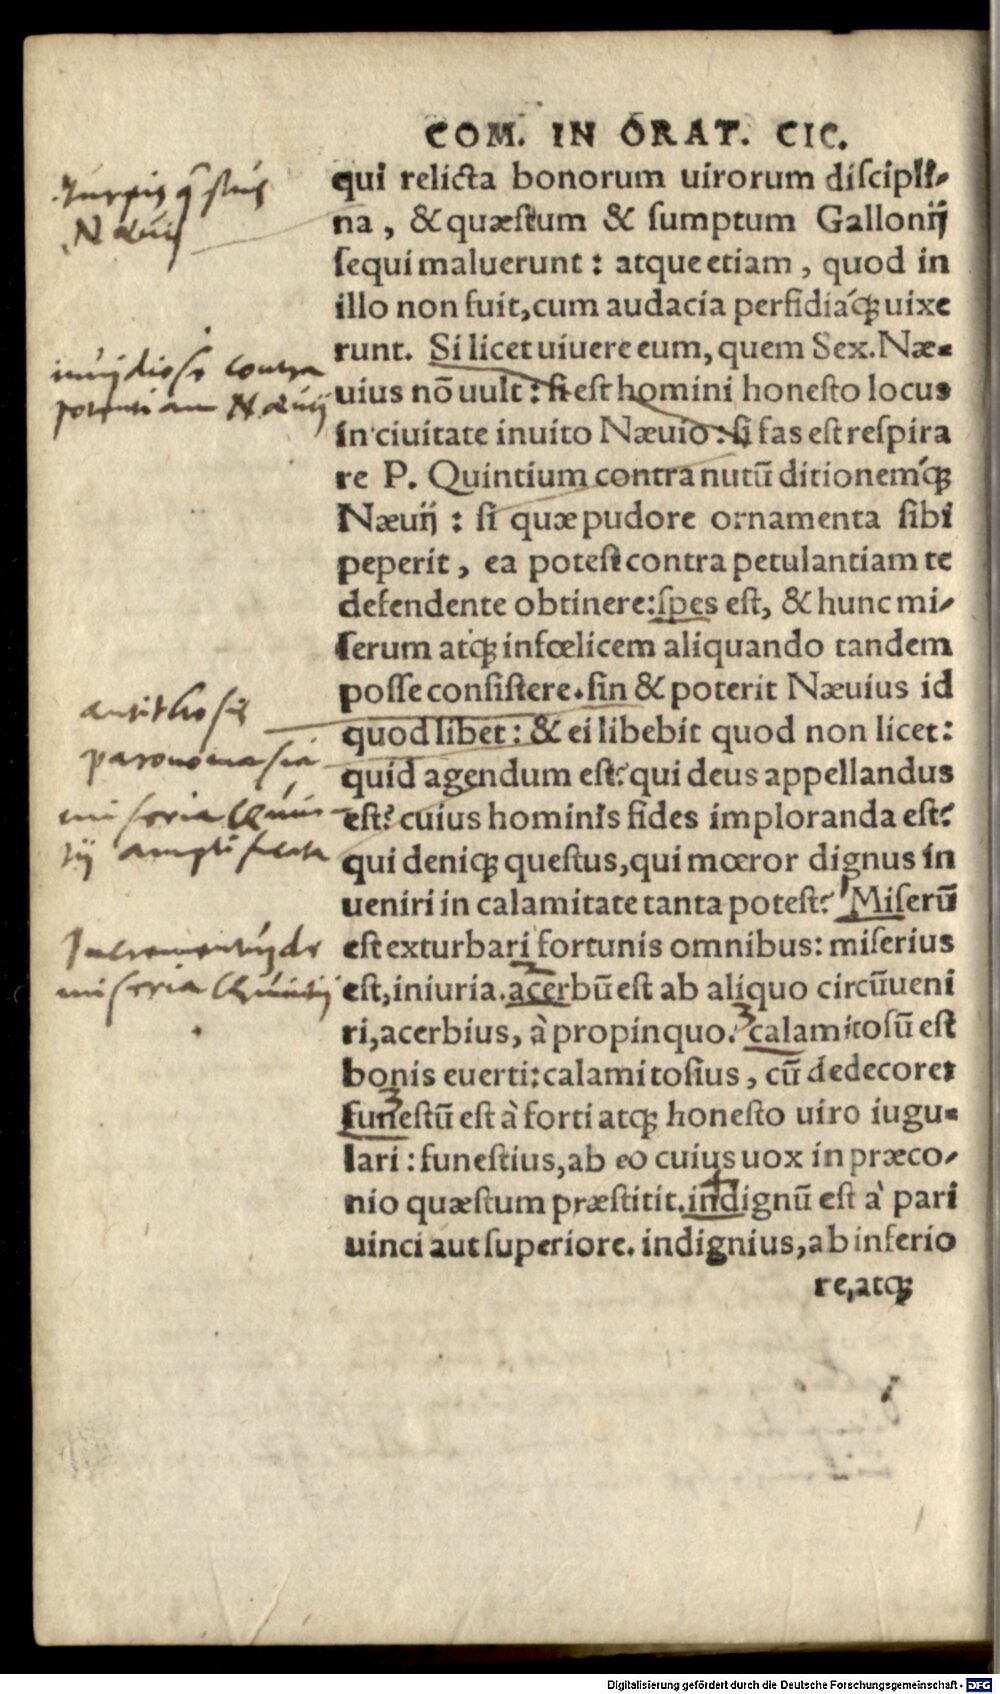 COM. IN ORAT. CIC.
qui relicta bonorum uirorum diſcipli-
na, & quæstum & ſumptum Gallonij
ſequi maluerunt: atque etiam, quod in
illo non fuit, cum audacia perfidiáq; uixe
runt. Si licet uiuere eum, quem Sex. Næ-
uius nõ uult: ſi est homini honesto locus
in ciuitate inuito Næuio: ſi fas est reſpira
re P. Quintium contra nutũ ditionemq́;
Næuij: ſi quæ pudore ornamenta ſibi
peperit, ea potest contra petulantiam te
defendente obtinere: ſpes est, & hunc mi-
ſerum atq; infœlicem aliquando tandem
poſſe conſistere. ſin & poterit Næuius id
quod libet: & ei libebit quod non licet:
quid agendum est? qui deus appellandus
est? cuius hominis fides imploranda est?
qui deniq; questus, qui mœror dignus in
ueniri in calamitate tanta potest? Miſerũ
est exturbari fortunis omnibus: miſerius
est, iniuria. acerbũ est ab aliquo circũueni
ri, acerbius, à propinquo. calamitoſũ est
bonis euerti: calamitoſius, cũ dedecore:
funestũ est à forti atq; honesto uiro iugu-
lari: funestius, ab eo cuius uox in præco-
nio quæstum præstitit. indignũ est à pari
uinci aut ſuperiore. indignius, ab inferio
re, atq;
turpis q̃stus
Næuij
inuidiose contra
potentiam Næuij
antithesis
paronomasia
miseria Quin
tij amplificata
Incrementū de
miseria Quintij
2
3
3
4
Digitalisierung gefördert durch die Deutsche Forschungsgemeinschaft - DFG